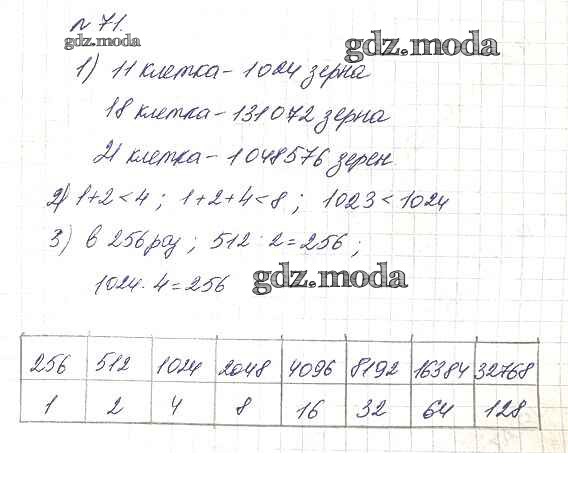 № 71.
gdz.moda
gdz.moda
1) 11 клетка – 1024 зерна
18 клетка – 131072 зерна
21 клетка – 1048576 зерен
2) 1+2<4 ; 1+2+4<8 ; 1023<1024
3) в 256 раз ; 512 : 2 = 256 ;
1024 : 4 = 256
gdz.moda
256 512 1024 2048 4096 8192 16384 32768
1 2 4 8 16 32 64 128